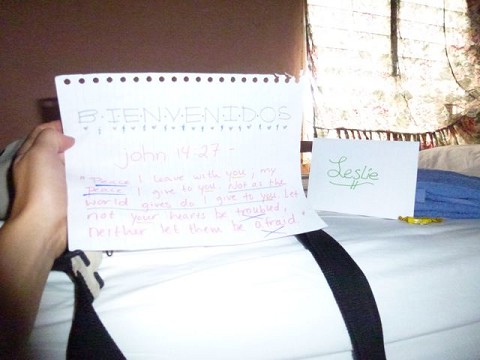 B·I·E·N·V·E·N·I·D·O·S
john 14:27 -
"Peace I leave with you; my
peace I give to you. Not as the
world gives do I give to you. Let
not your hearts be troubled,
neither let them be afraid"
Leslie